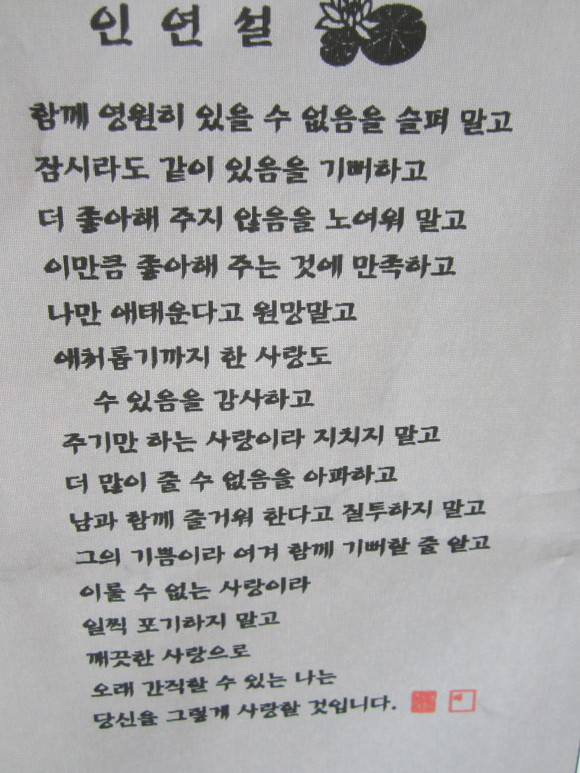 인연설
함께 영원히 있을 수 없음을 슬퍼 말고
잠시라도 같이 있음을 기뻐하고
더 좋아해 주지 않음을 노여워 말고
이만큼 좋아해 주는 것에 만족하고
나만 애태운다고 원망말고
애처롭기까지 한 사랑도
수 있음을 감사하고
주기만 하는 사랑이라 지치지 말고
더 많이 줄 수 없음을 아파하고
남과 함께 즐거워 한다고 질투하지 말고
그의 기쁨이라 여겨 함께 기뻐할 줄 알고
이룰 수 없는 사랑이라
일찍 포기하지 말고
깨끗한 사랑으로
오래 간직할 수 있는 나는
당신을 그렇게 사랑할 것입니다.